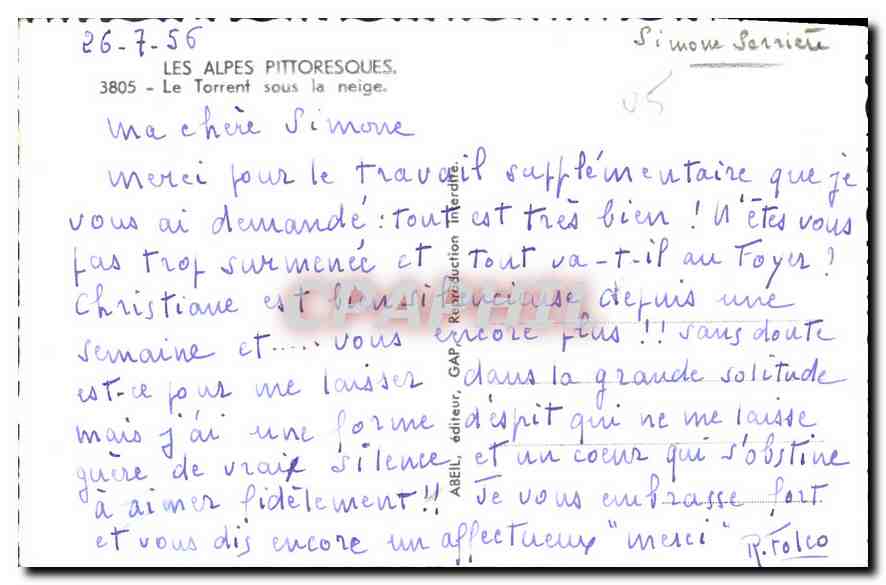 26-7-56
Simone Serrière
LES ALPES PITTORESQUES.
3805 - Le Torrent sous la neige.
ma chère Simone
merci pour le travail supplémentaire que je
vous ai demandé : tout est très bien ! N'êtes vous
pas trop surmenée et tout va-t-il au Foyer ?
Christiane est bien silencieuse depuis une
semaine et..... vous encore plus !! sans doute
est-ce pour me laisser dans la grande solitude
mais j'ai une forme d'espit qui ne me laisse
guère de vrai silence et un coeur qui s'obstine
à aimer fidèlement !! Je vous embrasse fort
et vous dis encore un affectueux "merci"
R. Folco
ABEIL, éditeur, GAP. Reproduction interdite.
CPAPHIL